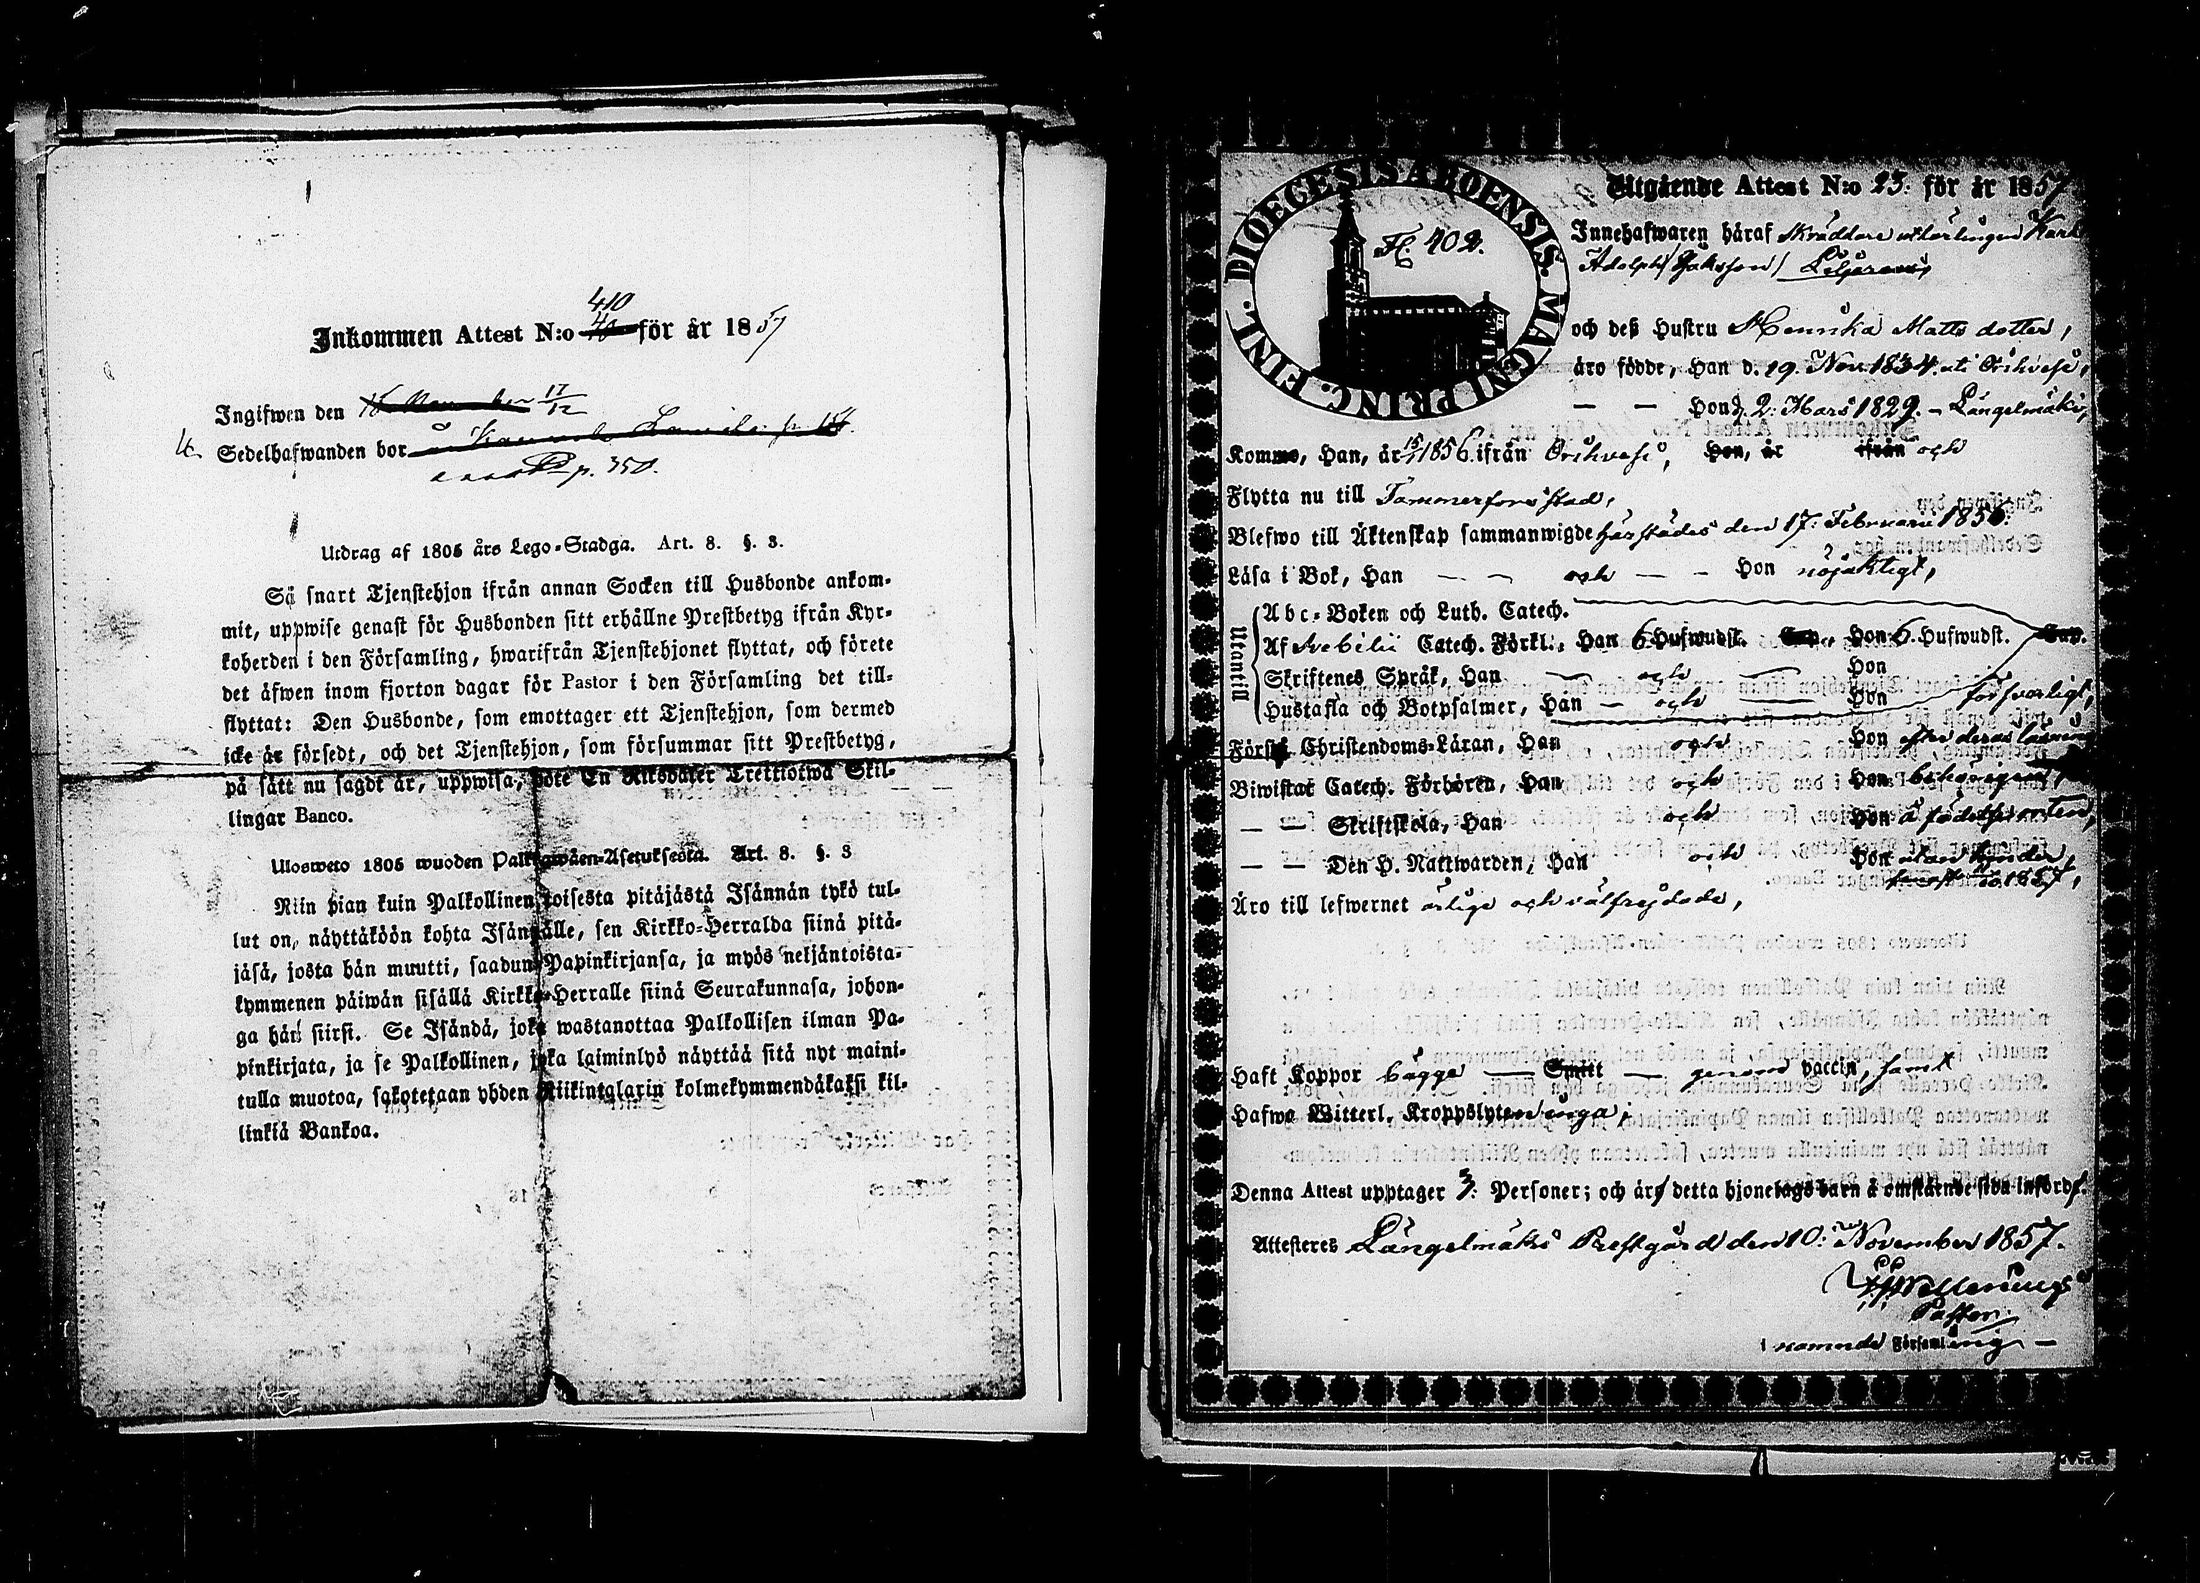 410
Inkommen Attest N:o 40 för år 1857
Ingifwen den 17/12
Sedelhafwanden bor
p. 350.
Utdrag af 1805 års Lego-Stadga. Art. 8. §. 3.
Så snart Tjenstehjon ifrån annan Socken till Husbonde ankom-
mit, uppwise genast för Husbonden sitt erhållne Prestbetyg ifrån Kyr-
koherden i den Församling, hwarifrån Tjenstehjonet flyttat, och förete
det äfwen inom fjorton dagar för Pastor i den Församling det till-
flyttat: Den Husbonde, som emottager ett Tjenstehjon, som dermed
icke är försedt, och det Tjenstehjon, som försummar sitt Prestbetyg,
på sätt nu sagdt är, uppwisa, böte En Riksdaler Trettiotwå Skil-
lingar Banco.
Ulosweto 1805 wuoden Palkkawäen-Asetuksesta. Art. 8. §. 3
Niin pian kuin Palkollinen toisesta pitäjästä Isännän tykö tul-
lut on, näyttäköön kohta Isännälle, sen Kirkko-Herralda siinä pitä-
jäsä, josta hän muutti, saadun Papinkirjansa, ja myös neljäntoista-
kymmenen päiwän sisällä Kirkko-Herralle siinä Seurakunnasa, johon-
ga hän siirsi. Se Isändä, joka wastanottaa Palkollisen ilman Pa-
pinkirjata, ja se Palkollinen, joka laiminlyö näyttää sitä nyt maini-
tulla muotoa, sakotetaan yhden Riikintalarin kolmekymmendäkaksi kil-
linkiä Bankoa.
DIOECESIS ABOENSIS. MAGNI PRINC. FINL.
Fl. 402.
Utgående Attest N:o 23. för år 1857
Innehafwaren häraf Skräddare utlärlingen Karl
Adolph /Jaksson/ Liljeroos,
och deß Hustru Hennika Matts dotter,
äro födde, Han d. 19. Nov. 1834. uti Orihvesi,
— — Hon d. 2. Mars 1829. - Längelmäki,
Kommo, Han, år 15/1 1856 ifrån Orihvesi, Hon, år ifrån och
Flytta nu till Tammerfors stad,
Blefwo till Äktenskap sammanwigde härstädes den 17. Februarii 1856.
Läsa i Bok, Han — — och — — Hon nöjaktigt,
Utantill
Abc-Boken och Luth. Catech.
Af Svebilii Catech. Förkl., Han 6 Hufwudst. Cap., Hon 6. Hufwudst. Cap.
Skriftenes Språk, Han — och — Hon
Hustafla och Botpsalmer, Han — och — Hon försvarligt,
Förstå Christendoms-Läran, Han och Hon efter deras läsning
Biwistat Catech. Förhören, Han och Hon behörigen,
— — Skriftskola, Han och Hon å födelseorten,
— — Den H. Nattwarden, Han och Hon utan hinder
1857,
Äro till lefwernet ärlige och välfrejdade,
Haft Koppor bägge — Smitt — genom vaccin, samt
Hafwa Witterl. Kroppslyten inga;
Denna Attest upptager 3. Personer; och äro detta hjonelags barn å omstående sida införde.
Attesteres Längelmäki Prestgård den 10. November 1857.
Pastor
i nämnde Församling —